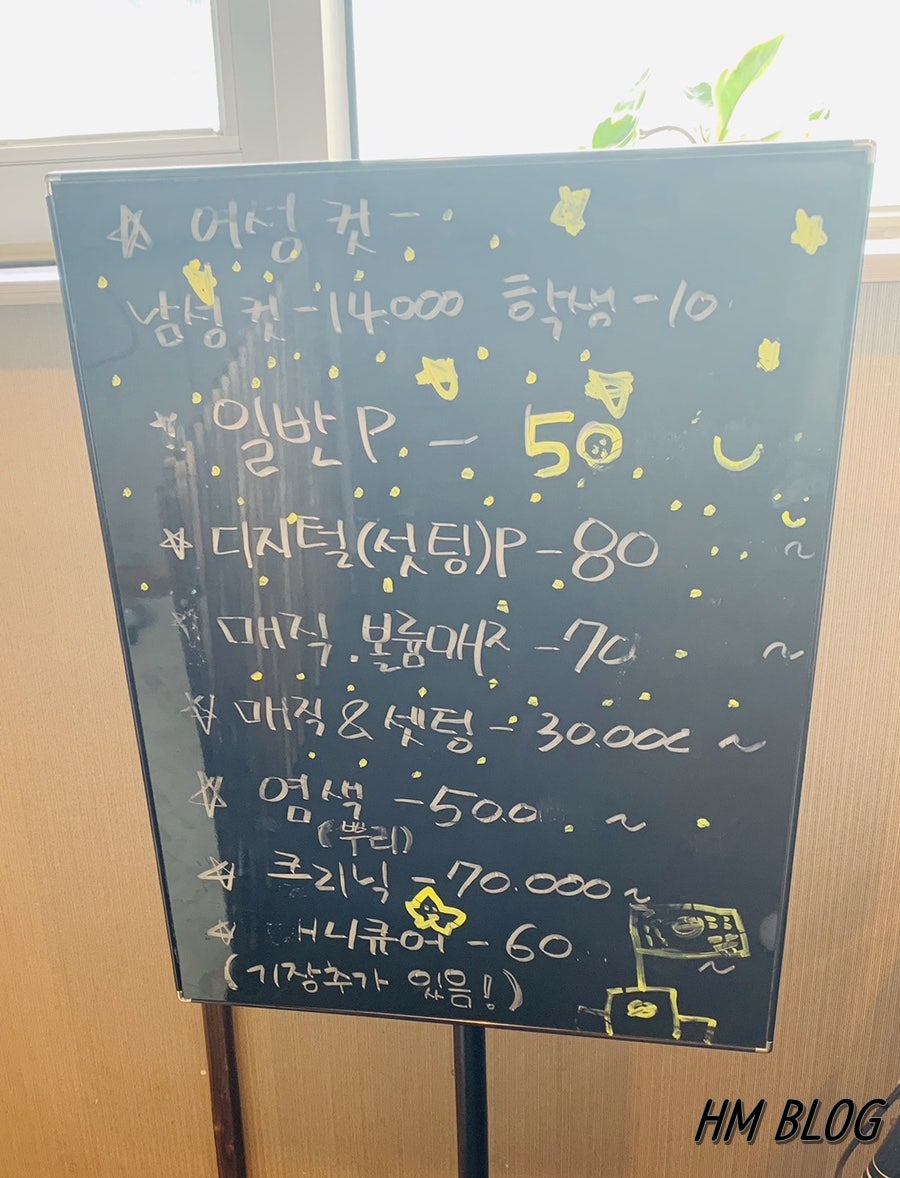 ☆ 여성 컷 -
남성 컷 - 14.000 학생 - 10
일반 P. - 50
☆ 디지털(셋팅)P - 80 ~
매직.볼륨매직 - 70 ~
☆ 매직 & 셋팅 - 30.000 ~
☆ 염색 - 50.0 ~
(뿌리)
☆ 크리닉 - 70.000 ~
☆ 매니큐어 - 60 ~
(기장추가 있음!)
HM BLOG